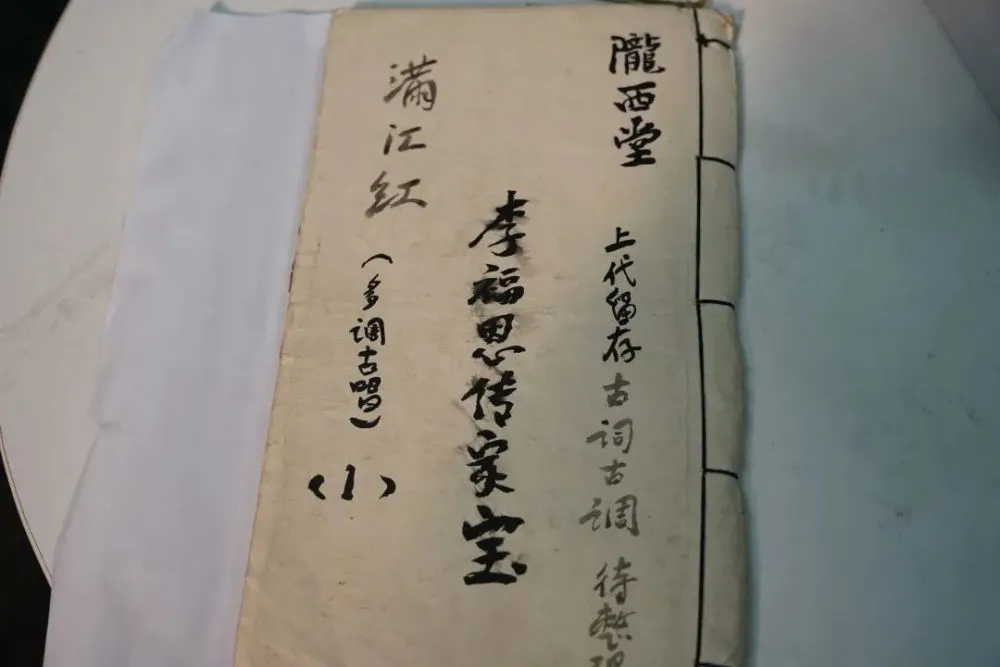 隴西堂 上代留存古词古调 待整理
李福思传家宝
满江红(多调古唱)
<1>